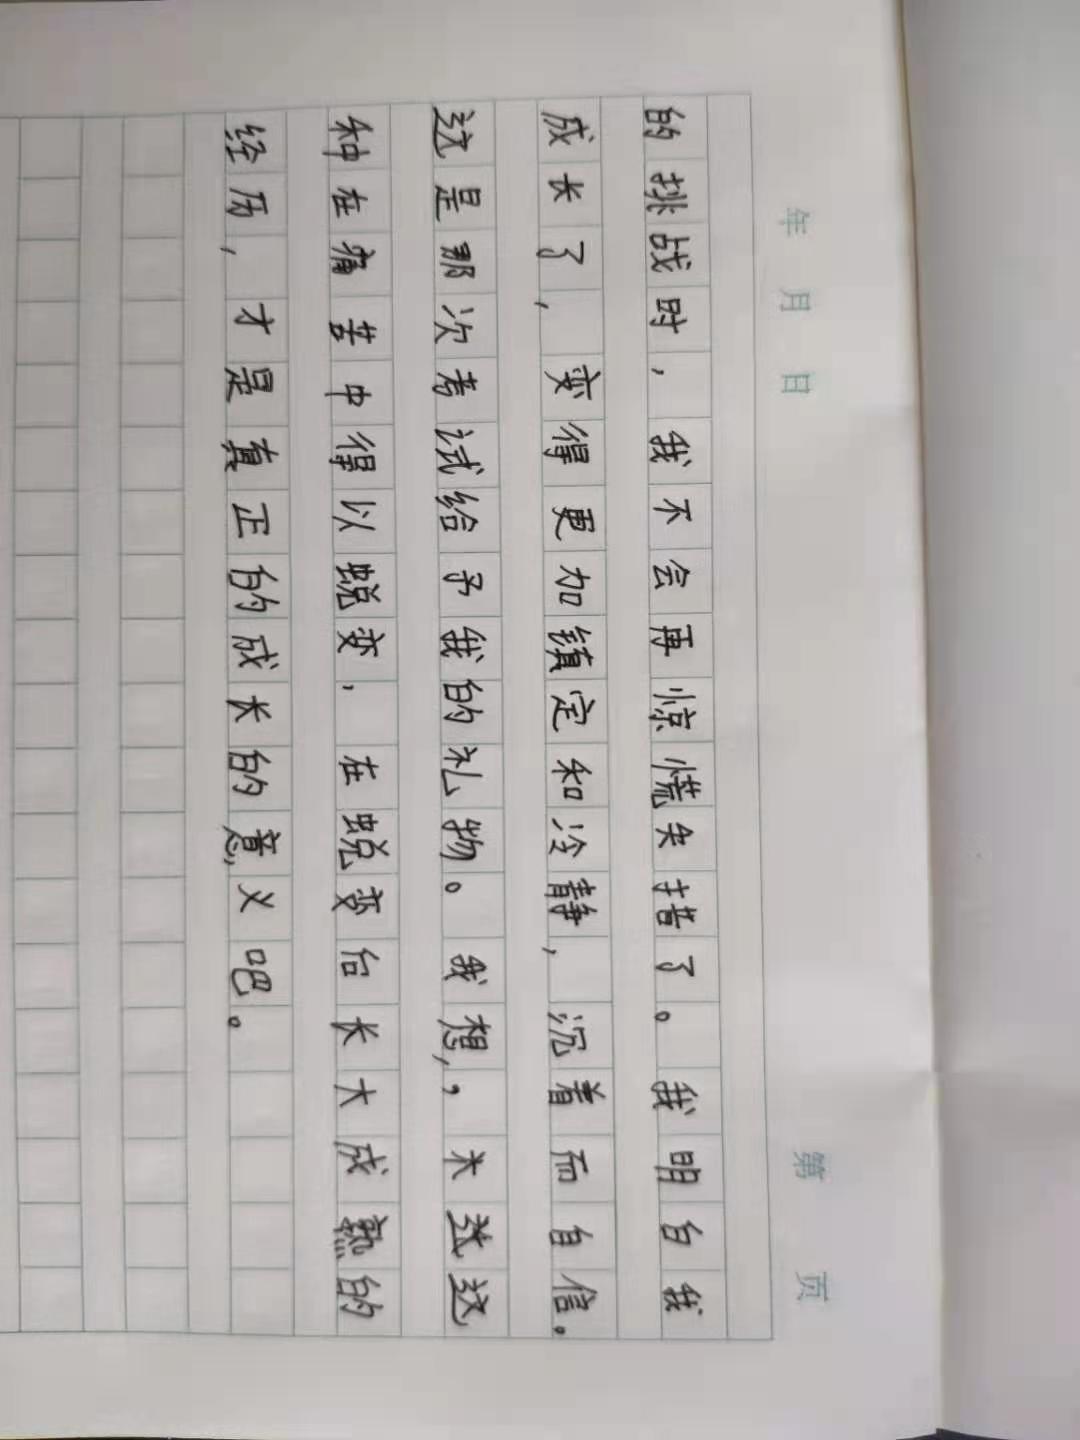 年 月 日 第 页
的挑战时，我不会再惊慌失措了。我明白我
成长了，变得更加镇定和冷静，沉着而自信。
这是那次考试给予我的礼物。我想，，大这这
种在痛苦中得以蜕变，在蜕变后长大成熟的
经历，才是真正的成长的意义吧。